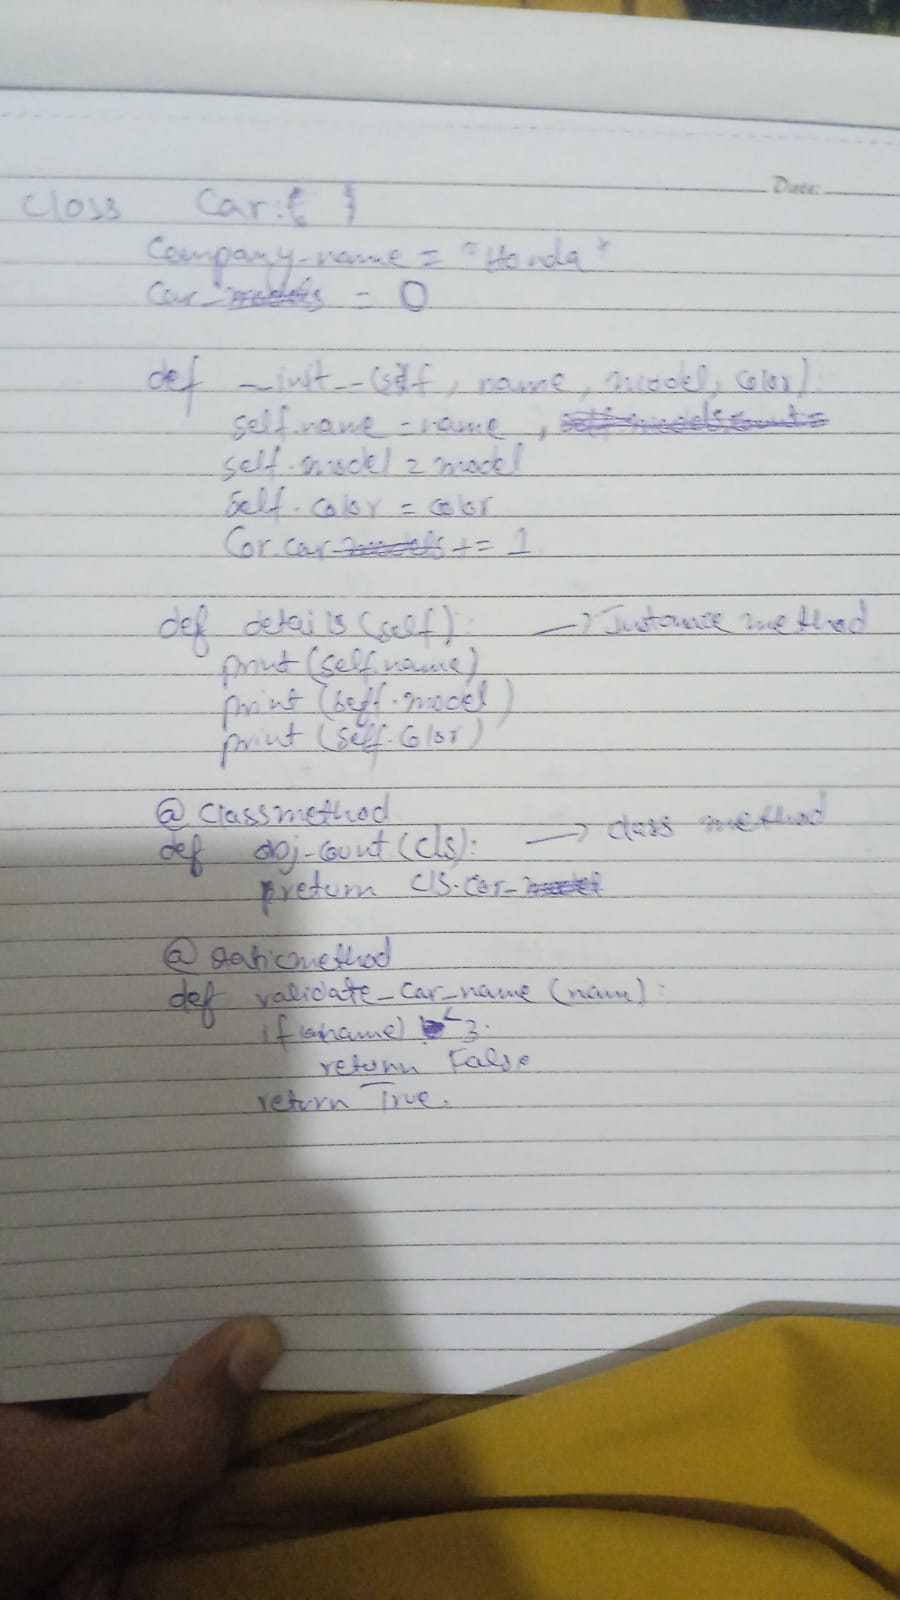 Date:
Class Car:{ }
Company-name = "Honda"
Car- = 0
def __init__(self, name, model, color):
self.name = name,
self.model = model
self.color = color
Car.car- += 1
def details(self): → Instance method
print(self.name)
print(self.model)
print(self.color)
@classmethod
def obj-count(cls): → class method
return cls.car-
@staticmethod
def validate_car_name(name):
if name) < 3:
return False
return True.